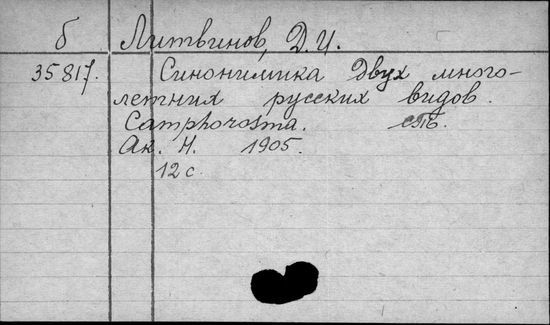 б Литвинов, Д.И.
35817. Синонимика двух много-
летних русских видов.
Camphorosma. СПБ.
Ак. Н. 1905.
12 с.